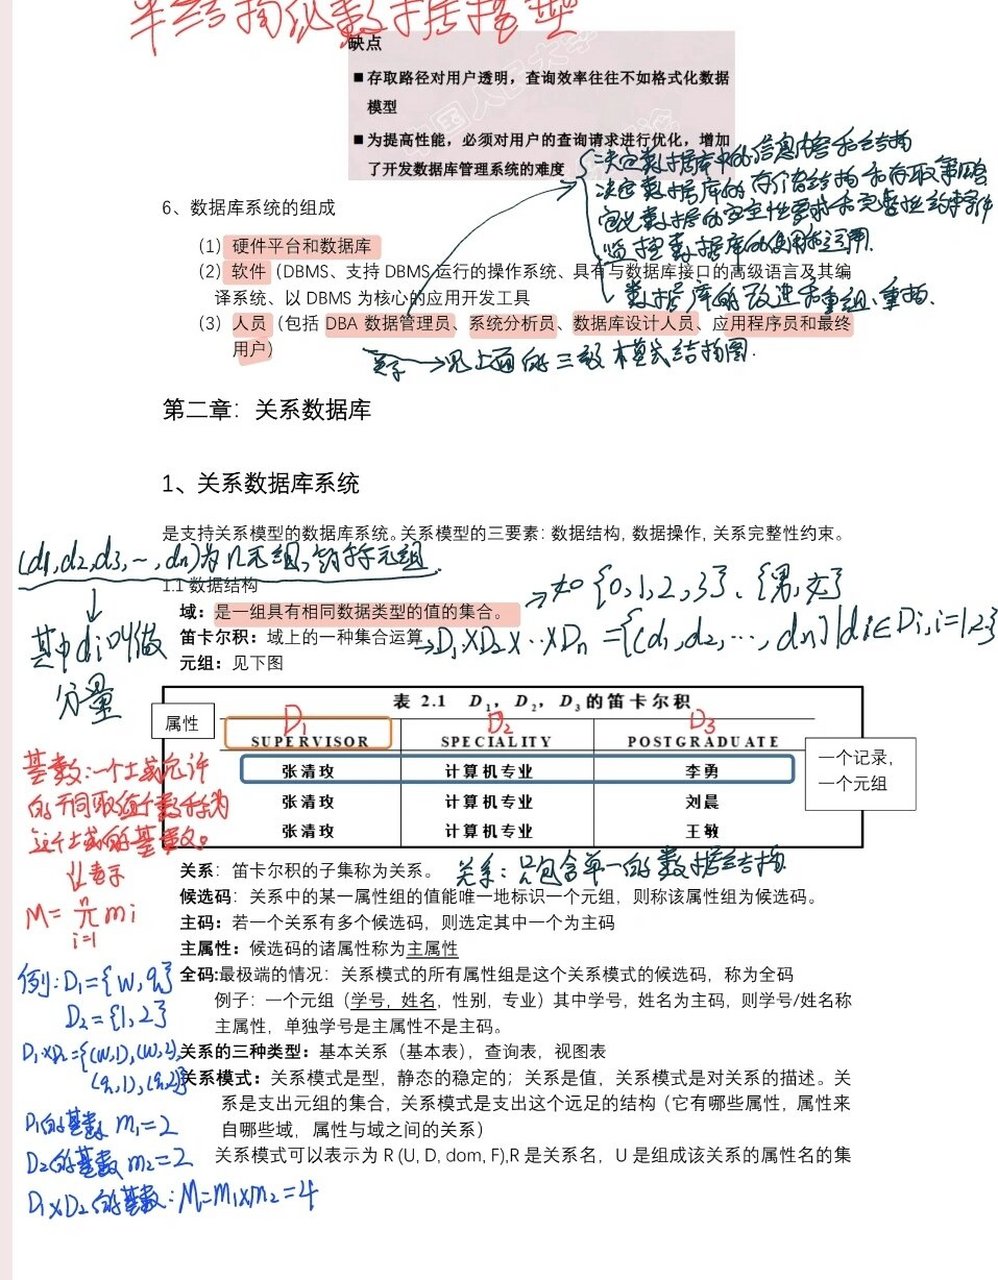 半结构化数据模型
缺点
■存取路径对用户透明，查询效率往往不如格式化数据
模型
■为提高性能，必须对用户的查询请求进行优化，增加
了开发数据库管理系统的难度
决定数据库中的信息内容和结构
决定数据库的存储结构和存取策略
定义数据的安全性要求和完整性约束条件
监控数据库的使用和运用.
数据库的改进和重组、重构.
6、数据库系统的组成
(1) 硬件平台和数据库
(2) 软件（DBMS、支持 DBMS 运行的操作系统、具有与数据库接口的高级语言及其编
译系统、以 DBMS 为核心的应用开发工具
(3) 人员（包括 DBA 数据管理员、系统分析员、数据库设计人员、应用程序员和最终
用户）
关系→见上面的三级模式结构图.
第二章：关系数据库
1、关系数据库系统
是支持关系模型的数据库系统。关系模型的三要素：数据结构，数据操作，关系完整性约束。
(d1,d2,d3,…,dn)为n元组,简称元组.
1.1 数据结构
域：是一组具有相同数据类型的值的集合。
→如{0,1,2,3}、{男,女}
其中di叫做
分量
笛卡尔积：域上的一种集合运算
→D1×D2×…×Dn={(d1,d2,…,dn)|di∈Di,i=1,2}
元组：见下图
表 2.1 D1，D2，D3的笛卡尔积
属性
D1 D2 D3
SUPERVISOR SPECIALITY POSTGRADUATE
张清玫 计算机专业 李勇
张清玫 计算机专业 刘晨
张清玫 计算机专业 王敏
一个记录，
一个元组
基数:一个域允许
的不同取值个数称为
这个域的基数。
以表示
M=∏mi
n
i=1
关系：笛卡尔积的子集称为关系。
关系：只包含单一的数据结构
候选码：关系中的某一属性组的值能唯一地标识一个元组，则称该属性组为候选码。
主码：若一个关系有多个候选码，则选定其中一个为主码
主属性：候选码的诸属性称为主属性
全码:最极端的情况：关系模式的所有属性组是这个关系模式的候选码，称为全码
例子：一个元组（学号, 姓名，性别，专业）其中学号，姓名为主码，则学号/姓名称
主属性，单独学号是主属性不是主码。
关系的三种类型：基本关系（基本表），查询表，视图表
关系模式：关系模式是型，静态的稳定的；关系是值，关系模式是对关系的描述。关
系是支出元组的集合，关系模式是支出这个远足的结构（它有哪些属性，属性来
自哪些域，属性与域之间的关系）
关系模式可以表示为 R (U, D, dom, F),R 是关系名，U 是组成该关系的属性名的集
例:D1={w,q}
D2={1,2}
D1×D2={(w,1),(w,2),
(q,1),(q,2)}
D1的基数 m1=2
D2的基数 m2=2
D1×D2的基数:M=m1×m2=4